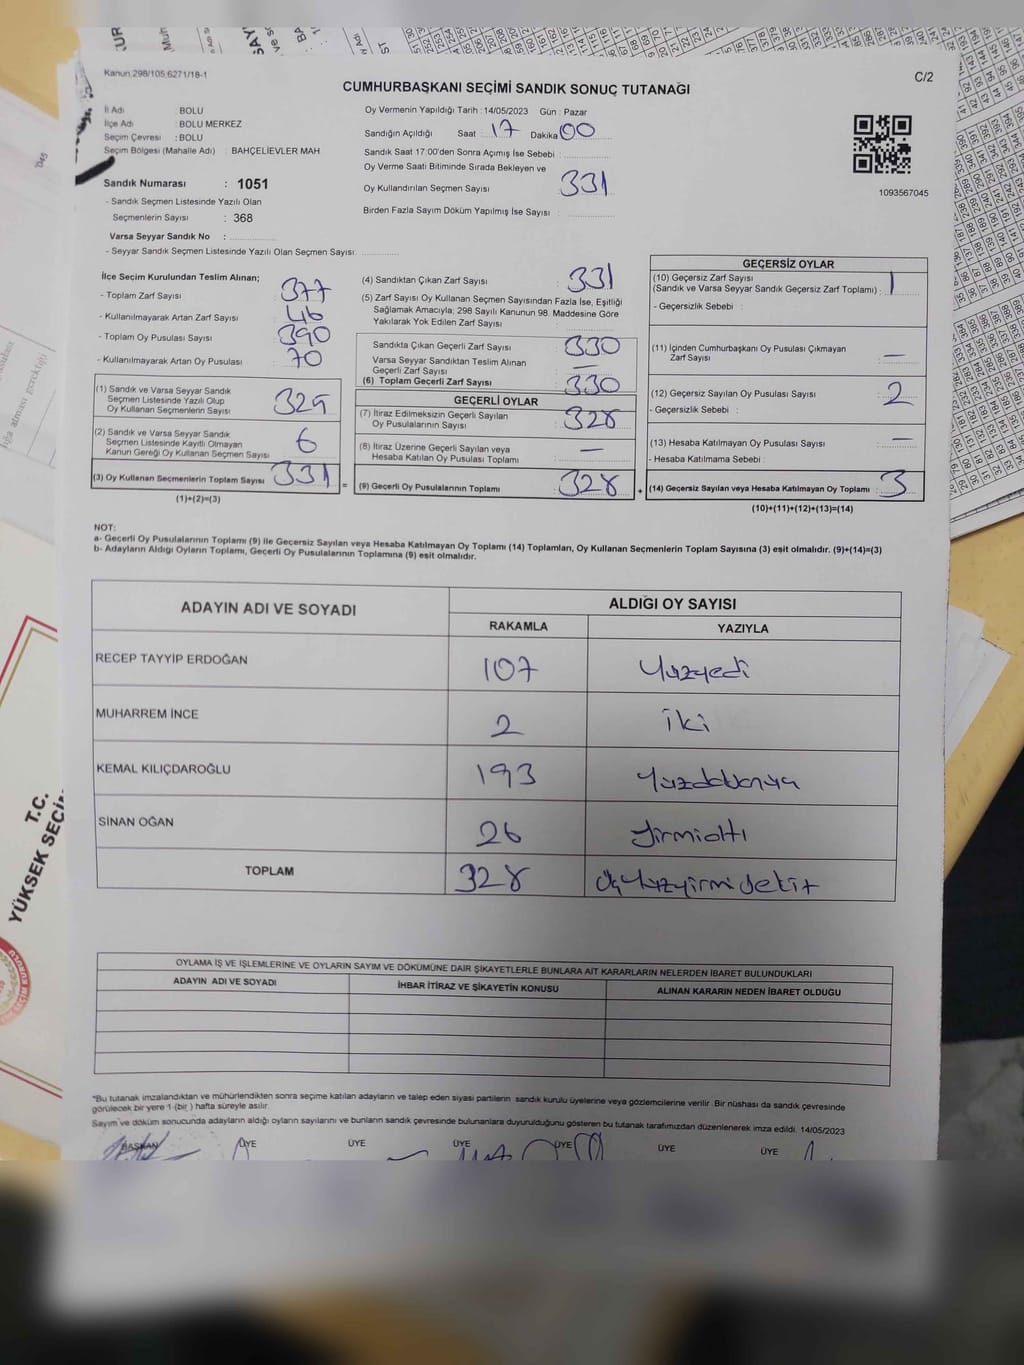 Kanun 298/105,6271/18-1
C/2
CUMHURBAŞKANI SEÇİMİ SANDIK SONUÇ TUTANAĞI
İl Adı : BOLU
İlçe Adı : BOLU MERKEZ
Seçim Çevresi : BOLU
Seçim Bölgesi (Mahalle Adı) : BAHÇELİEVLER MAH
Sandık Numarası : 1051
- Sandık Seçmen Listesinde Yazılı Olan
Seçmenlerin Sayısı : 368
Varsa Seyyar Sandık No :
- Seyyar Sandık Seçmen Listesinde Yazılı Olan Seçmen Sayısı:
Oy Vermenin Yapıldığı Tarih : 14/05/2023 Gün : Pazar
Sandığın Açıldığı Saat : 17 Dakika 00
Sandık Saat 17:00'den Sonra Açımış İse Sebebi :
Oy Verme Saati Bitiminde Sırada Bekleyen ve
Oy Kullandırılan Seçmen Sayısı : 331
Birden Fazla Sayım Döküm Yapılmış İse Sayısı :
1093567045
İlçe Seçim Kurulundan Teslim Alınan;
- Toplam Zarf Sayısı : 377
- Kullanılmayarak Artan Zarf Sayısı : 46
- Toplam Oy Pusulası Sayısı : 390
- Kullanılmayarak Artan Oy Pusulası : 70
(1) Sandık ve Varsa Seyyar Sandık
Seçmen Listesinde Yazılı Olup
Oy Kullanan Seçmenlerin Sayısı : 325
(2) Sandık ve Varsa Seyyar Sandık
Seçmen Listesinde Kayıtlı Olmayan
Kanun Gereği Oy Kullanan Seçmen Sayısı : 6
(3) Oy Kullanan Seçmenlerin Toplam Sayısı : 331
(1)+(2)=(3)
(4) Sandıktan Çıkan Zarf Sayısı : 331
(5) Zarf Sayısı Oy Kullanan Seçmen Sayısından Fazla İse, Eşitliği
Sağlamak Amacıyla; 298 Sayılı Kanunun 98. Maddesine Göre
Yakılarak Yok Edilen Zarf Sayısı :
Sandıkta Çıkan Geçerli Zarf Sayısı : 330
Varsa Seyyar Sandıktan Teslim Alınan
Geçerli Zarf Sayısı : —
(6) Toplam Geçerli Zarf Sayısı : 330
GEÇERLİ OYLAR
(7) İtiraz Edilmeksizin Geçerli Sayılan
Oy Pusulalarının Sayısı : 328
(8) İtiraz Üzerine Geçerli Sayılan veya
Hesaba Katılan Oy Pusulası Toplamı : —
= (9) Geçerli Oy Pusulalarının Toplamı : 328
GEÇERSİZ OYLAR
(10) Geçersiz Zarf Sayısı
(Sandık ve Varsa Seyyar Sandık Geçersiz Zarf Toplamı) : 1
- Geçersizlik Sebebi :
(11) İçinden Cumhurbaşkanı Oy Pusulası Çıkmayan
Zarf Sayısı : —
(12) Geçersiz Sayılan Oy Pusulası Sayısı : 2
- Geçersizlik Sebebi :
(13) Hesaba Katılmayan Oy Pusulası Sayısı : —
- Hesaba Katılmama Sebebi :
+ (14) Geçersiz Sayılan veya Hesaba Katılmayan Oy Toplamı : 3
(10)+(11)+(12)+(13)=(14)
NOT:
a- Geçerli Oy Pusulalarının Toplamı (9) ile Geçersiz Sayılan veya Hesaba Katılmayan Oy Toplamı (14) Toplamları, Oy Kullanan Seçmenlerin Toplam Sayısına (3) eşit olmalıdır. (9)+(14)=(3)
b- Adayların Aldığı Oyların Toplamı, Geçerli Oy Pusulalarının Toplamına (9) eşit olmalıdır.
ADAYIN ADI VE SOYADI
ALDIĞI OY SAYISI
RAKAMLA YAZIYLA
RECEP TAYYİP ERDOĞAN 107 Yüzyedi
MUHARREM İNCE 2 iki
KEMAL KILIÇDAROĞLU 193
SİNAN OĞAN 26 yirmialtı
TOPLAM 328 üçyüzyirmisekiz
OYLAMA İŞ VE İŞLEMLERİNE VE OYLARIN SAYIM VE DÖKÜMÜNE DAİR ŞİKAYETLERLE BUNLARA AİT KARARLARIN NELERDEN İBARET BULUNDUKLARI
ADAYIN ADI VE SOYADI İHBAR İTİRAZ VE ŞİKAYETİN KONUSU ALINAN KARARIN NEDEN İBARET OLDUĞU
*Bu tutanak imzalandıktan ve mühürlendikten sonra seçime katılan adayların ve talep eden siyasi partilerin sandık kurulu üyelerine veya gözlemcilerine verilir. Bir nüshası da sandık çevresinde
görülecek bir yere 1 (bir) hafta süreyle asılır.
Sayım ve döküm sonucunda adayların aldığı oyların sayılarını ve bunların sandık çevresinde bulunanlara duyurulduğunu gösteren bu tutanak tarafımızdan düzenlenerek imza edildi. 14/05/2023
BAŞKAN ÜYE ÜYE ÜYE ÜYE ÜYE ÜYE
T.C.
YÜKSEK SEÇİM